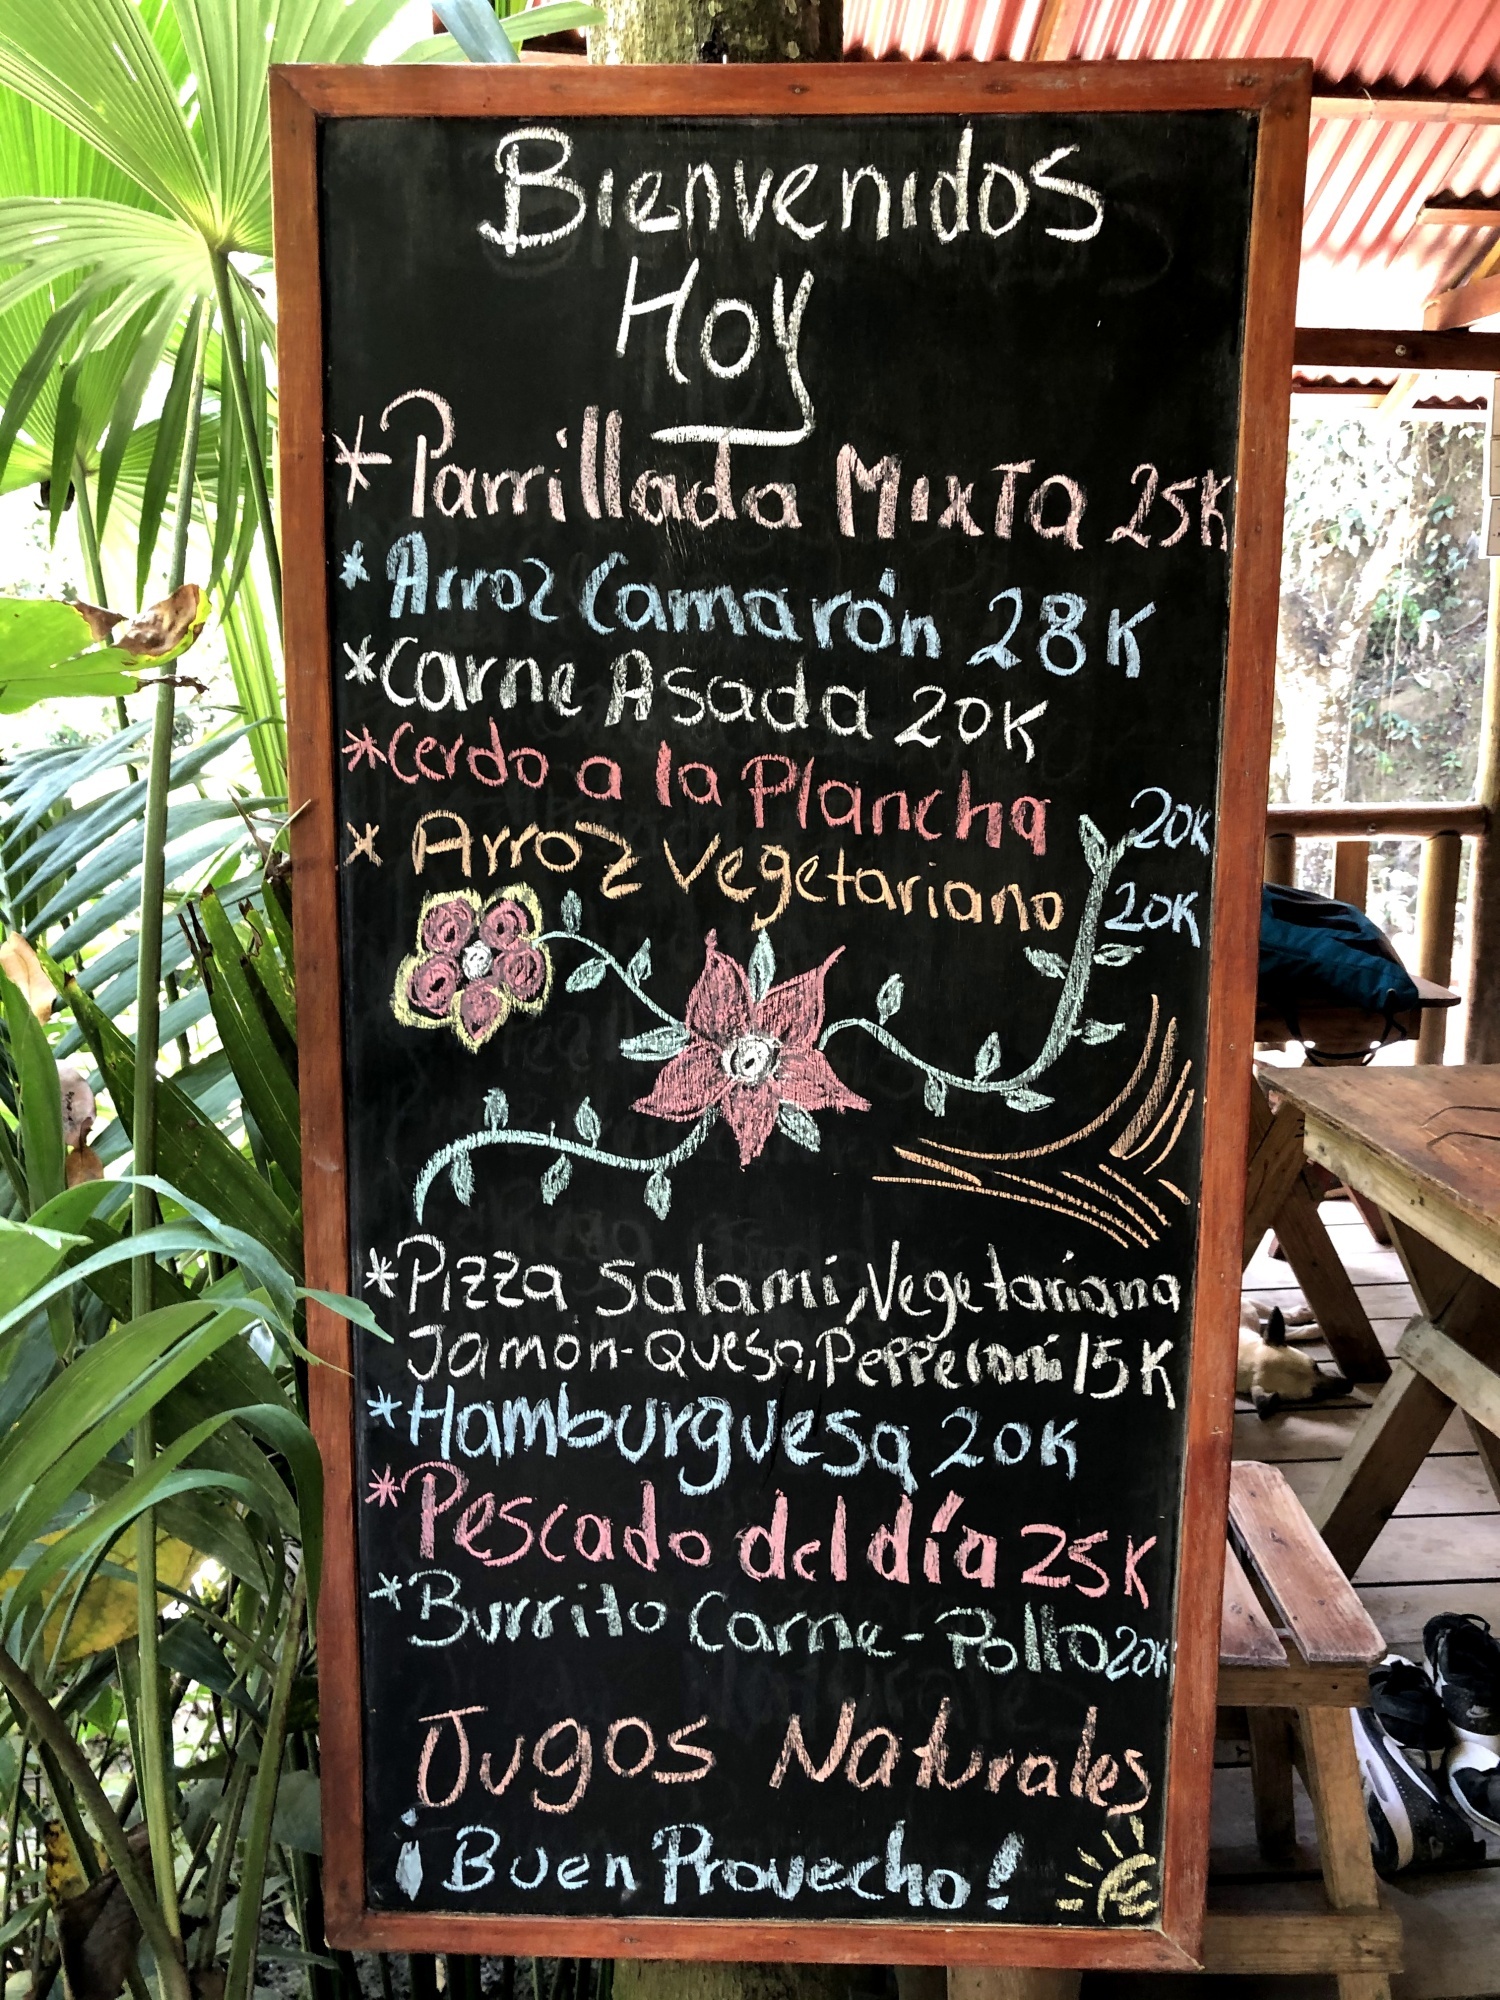 Bienvenidos
Hoy
* Parrillada Mixta 25K
* Arroz Camarón 28K
* Carne Asada 20K
* Cerdo a la Plancha 20K
* Arroz Vegetariano 20K
* Pizza Salami, Vegetariana
Jamón-Queso, Pepperoni 15K
* Hamburguesa 20K
* Pescado del día 25K
* Burrito Carne-Pollo 20K
Jugos Naturales
¡Buen Provecho!